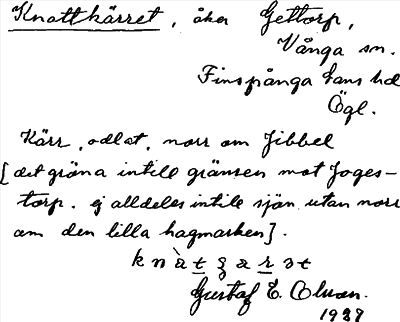 Knattkärret, åker Gettorp,
Vånga sn.
Finspånga läns hd
Ögl.
Kärr, odlat, norr om Jibbel
[det gröna intill gränsen mot Joges-
torp. ej alldeles intill sjön utan norr
om den lilla hagmarken].
Gustaf E. Olsson.
1937